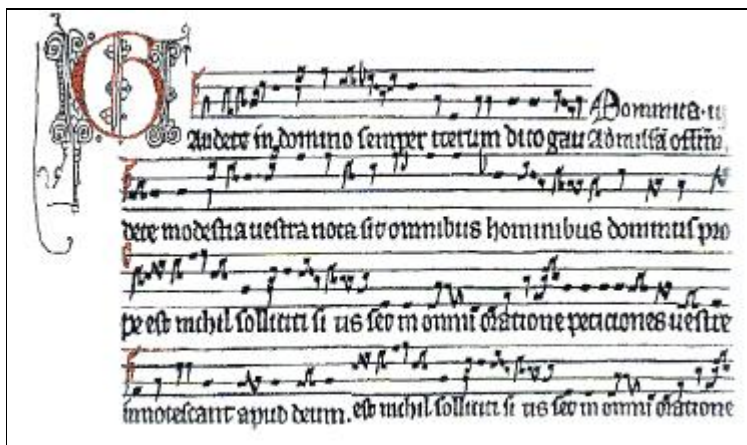 Dominica · ii
Gaudete in domino semper iterum dico gau Ad missā offm̄.
dete modestia uestra nota sit omnibus hominibus dominus pro
pe est nichil solliciti si tis sed in omni oratione peticiones uestre
innotescant apud deum. est nichil solliciti si tis sed in omni oratione